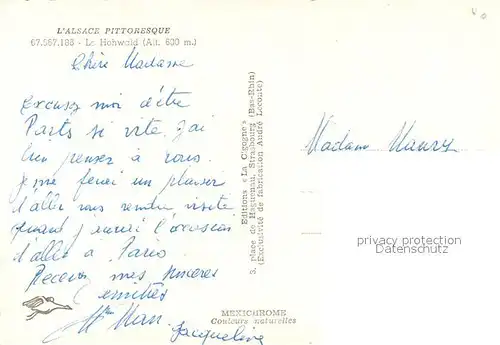 L'ALSACE PITTORESQUE
67.567.168 - Le Hohwald (Alt. 600 m.)
Chère Madame
Excusez moi d'être
Partis si vite, j'ai
bien penser à vous.
Je me ferai un plaisir
d'aller vous rendre visite
quand j'aurai l'occasion
d'aller à Paris.
Recevez mes sincères
amitiés
Jacqueline
Editions « La Cigogne »
3, place de Haguenau, Strasbourg (Bas-Rhin)
(Exclusivité de fabrication André Leconte)
MEXICHROME
Couleurs naturelles
Madame Maury
privacy protection
Datenschutz